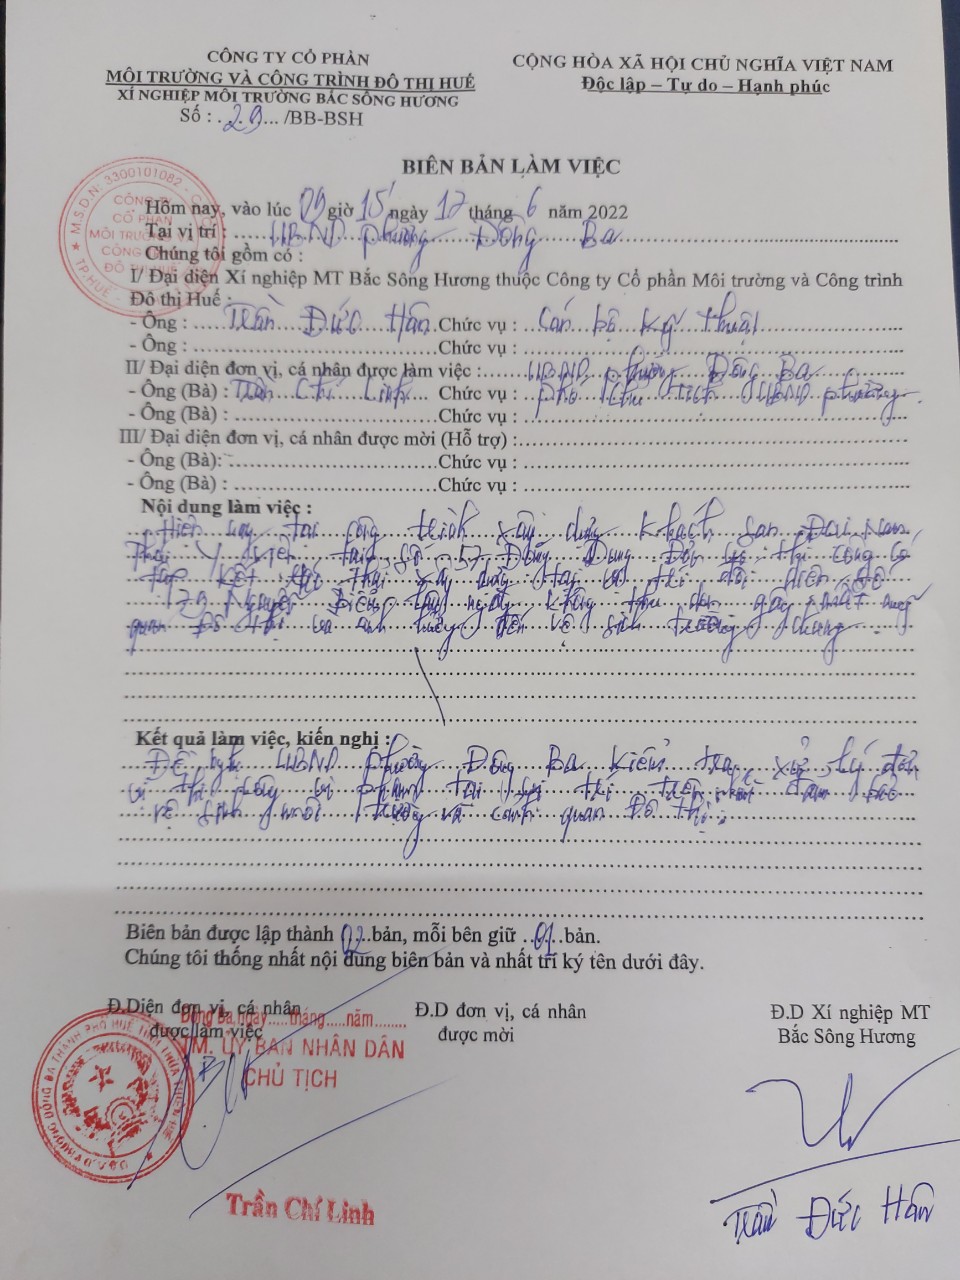 CÔNG TY CỔ PHẦN
MÔI TRƯỜNG VÀ CÔNG TRÌNH ĐÔ THỊ HUẾ
XÍ NGHIỆP MÔI TRƯỜNG BẮC SÔNG HƯƠNG
Số : ..29... /BB-BSH
CỘNG HÒA XÃ HỘI CHỦ NGHĨA VIỆT NAM
Độc lập – Tự do – Hạnh phúc
BIÊN BẢN LÀM VIỆC
M.S.D.N: 3300101082
CÔNG TY
CỔ PHẦN
MÔI TRƯỜNG VÀ
CÔNG TRÌNH
ĐÔ THỊ HUẾ
TP. HUẾ
Hôm nay, vào lúc 09 giờ 15' ngày 17 tháng 6 năm 2022
Tại vị trí : UBND phường Đông Ba
Chúng tôi gồm có :
I/ Đại diện Xí nghiệp MT Bắc Sông Hương thuộc Công ty Cổ phần Môi trường và Công trình
Đô thị Huế :
- Ông : Trần Đức Hân Chức vụ : Cán bộ Kỹ thuật
- Ông : Chức vụ :
II/ Đại diện đơn vị, cá nhân được làm việc : UBND phường Đông Ba
- Ông (Bà) : Trần Chí Linh Chức vụ : phó chủ tịch UBND phường
- Ông (Bà) : Chức vụ :
III/ Đại diện đơn vị, cá nhân được mời (Hỗ trợ) :
- Ông (Bà): Chức vụ :
- Ông (Bà) : Chức vụ :
Nội dung làm việc :
Hiện nay tại công trình xây dựng Khách sạn
tại số 57 Đặng Dung Đơn vị thi công có
tập kết thải xây dựng tại vị trí đối diện số
179 Nguyễn Biểu không thu dọn gây mất mỹ
quan Đô thị và ảnh hưởng đến vệ sinh trường chung
Kết quả làm việc, kiến nghị :
Đề nghị UBND phường Đông Ba kiểm tra, xử lý đơn
vị thi công vi phạm tại vị trí trên đảm bảo
vệ sinh môi trường và cảnh quan Đô thị
Biên bản được lập thành 02 bản, mỗi bên giữ 01 bản.
Chúng tôi thống nhất nội dung biên bản và nhất trí ký tên dưới đây.
Đ.Diện đơn vị, cá nhân
được làm việc
Đ.D đơn vị, cá nhân
được mời
Đ.D Xí nghiệp MT
Bắc Sông Hương
Đông Ba, ngày.....tháng....năm........
TM. ỦY BAN NHÂN DÂN
CHỦ TỊCH
Trần Chí Linh
Trần Đức Hân